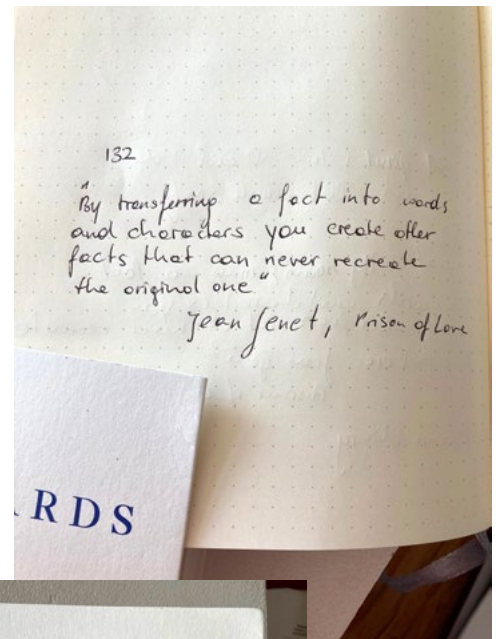 132
"By transferring a fact into words
and characters you create other
facts that can never recreate
the original one"
Jean Genet, Prison of Love
ARDS